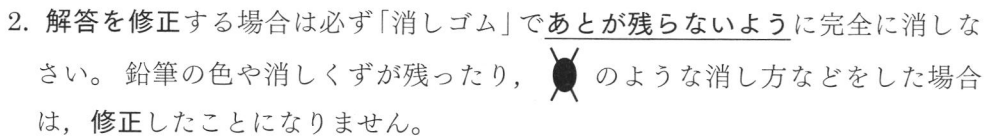 2. 解答を修正する場合は必ず「消しゴム」であとが残らないように完全に消しな
さい。 鉛筆の色や消しくずが残ったり， のような消し方などをした場合
は，修正したことになりません。